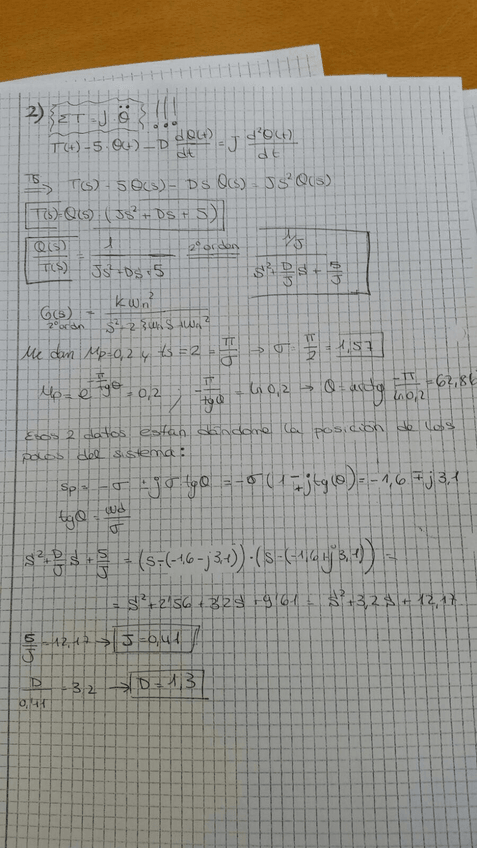 2) {ΣT = J θ̈} !!!
T(t) - 5·θ(t) - D dθ(t)/dt = J d²θ(t)/dt
TS ⇒ T(s) - 5θ(s) - DSθ(s) = JS²θ(s)
T(s) = θ(s)·(JS² + DS + 5)
θ(s)/T(s) = 1/(JS² + DS + 5) 2º orden (1/J)/(S² + D/J S + 5/J)
G(s) 2º orden = kωn²/(S² + 2ζωnS + ωn²)
Me dan Mp = 0,2 y ts = 2 = π/σ → σ = π/2 = 1,57
Mp = e^(-π/tgθ) = 0,2 , -π/tgθ = ln 0,2 → θ = arctg -π/ln 0,2 = 62,8
Esos 2 datos están dándome la posición de los
polos del sistema:
sp = -σ ± jσ tgθ = -σ(1 ∓ j tg(θ)) = -1,6 ∓ j 3,1
tgθ = ωd/σ
S² + D/J S + 5/J = (S-(-1,6-j3,1))·(S-(-1,6+j3,1)) =
= S² + 2'56 + 3'2S + 9'61 = S² + 3,2S + 12,17
5/J = 12,17 → J = 0,41
D/0,41 = 3,2 → D = 1,3